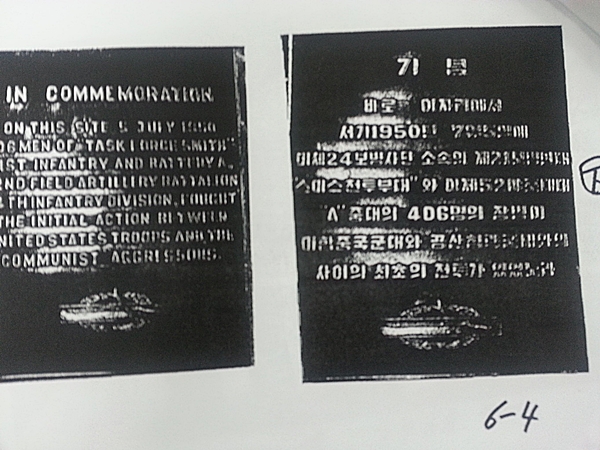 IN COMMEMORATION
ON THIS SITE 5 JULY 1950
06 MEN OF "TASK FORCE SMITH"
1ST INFANTRY AND BATTERY A,
2ND FIELD ARTILLERY BATTALION
TH INFANTRY DIVISION, FOUGHT
THE INITIAL ACTION BETWEEN
UNITED STATES TROOPS AND THE
COMMUNIST AGGRESSORS.
기 념
바로 이자리에서
서기1950년
미제24보병사단 소속의
"스미스전투부대" 와
"A" 중대의 406명의 장병이
미합중국군대와
사이의 최초의 전투가
6-4